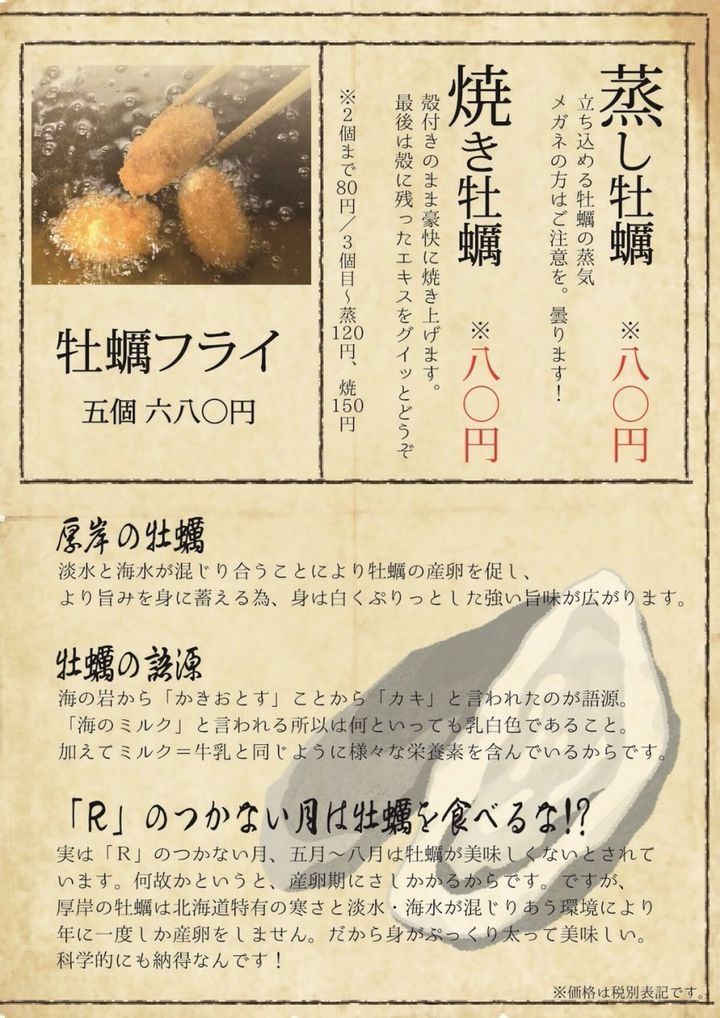 蒸し牡蠣
立ち込める牡蠣の蒸気
メガネの方はご注意を。曇ります！
※八〇円
焼き牡蠣
殻付きのまま豪快に焼き上げます。
最後は殻に残ったエキスをグイッとどうぞ
※八〇円
※2個まで80円／3個目～蒸120円、焼150円
牡蠣フライ
五個 六八〇円
厚岸の牡蠣
淡水と海水が混じり合うことにより牡蠣の産卵を促し、
より旨みを身に蓄える為、身は白くぷりっとした強い旨味が広がります。
牡蠣の語源
海の岩から「かきおとす」ことから「カキ」と言われたのが語源。
「海のミルク」と言われる所以は何といっても乳白色であること。
加えてミルク＝牛乳と同じように様々な栄養素を含んでいるからです。
「R」のつかない月は牡蠣を食べるな!?
実は「R」のつかない月、五月～八月は牡蠣が美味しくないとされて
います。何故かというと、産卵期にさしかかるからです。ですが、
厚岸の牡蠣は北海道特有の寒さと淡水・海水が混じりあう環境により
年に一度しか産卵をしません。だから身がぷっくり太って美味しい。
科学的にも納得なんです！
※価格は税別表記です。